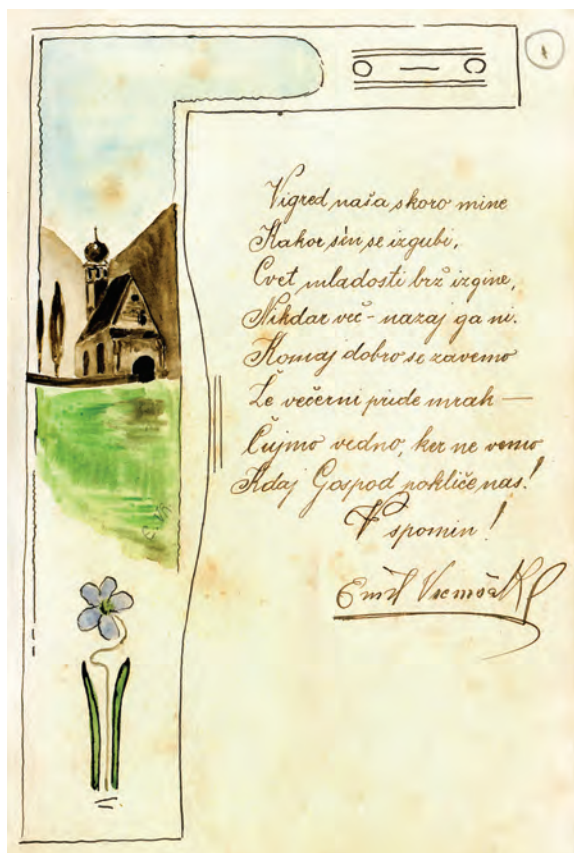 Vigred naša skoro mine
Kakor sèn se izgubi,
Cvet mladosti brž izgine,
Nikdar več - nazaj ga ni.
Komaj dobro se zavemo
Že večerni pride mrak —
Čujmo vedno, ker ne vemo
Kdaj Gospod pokliče nas!
V spomin!
Emil